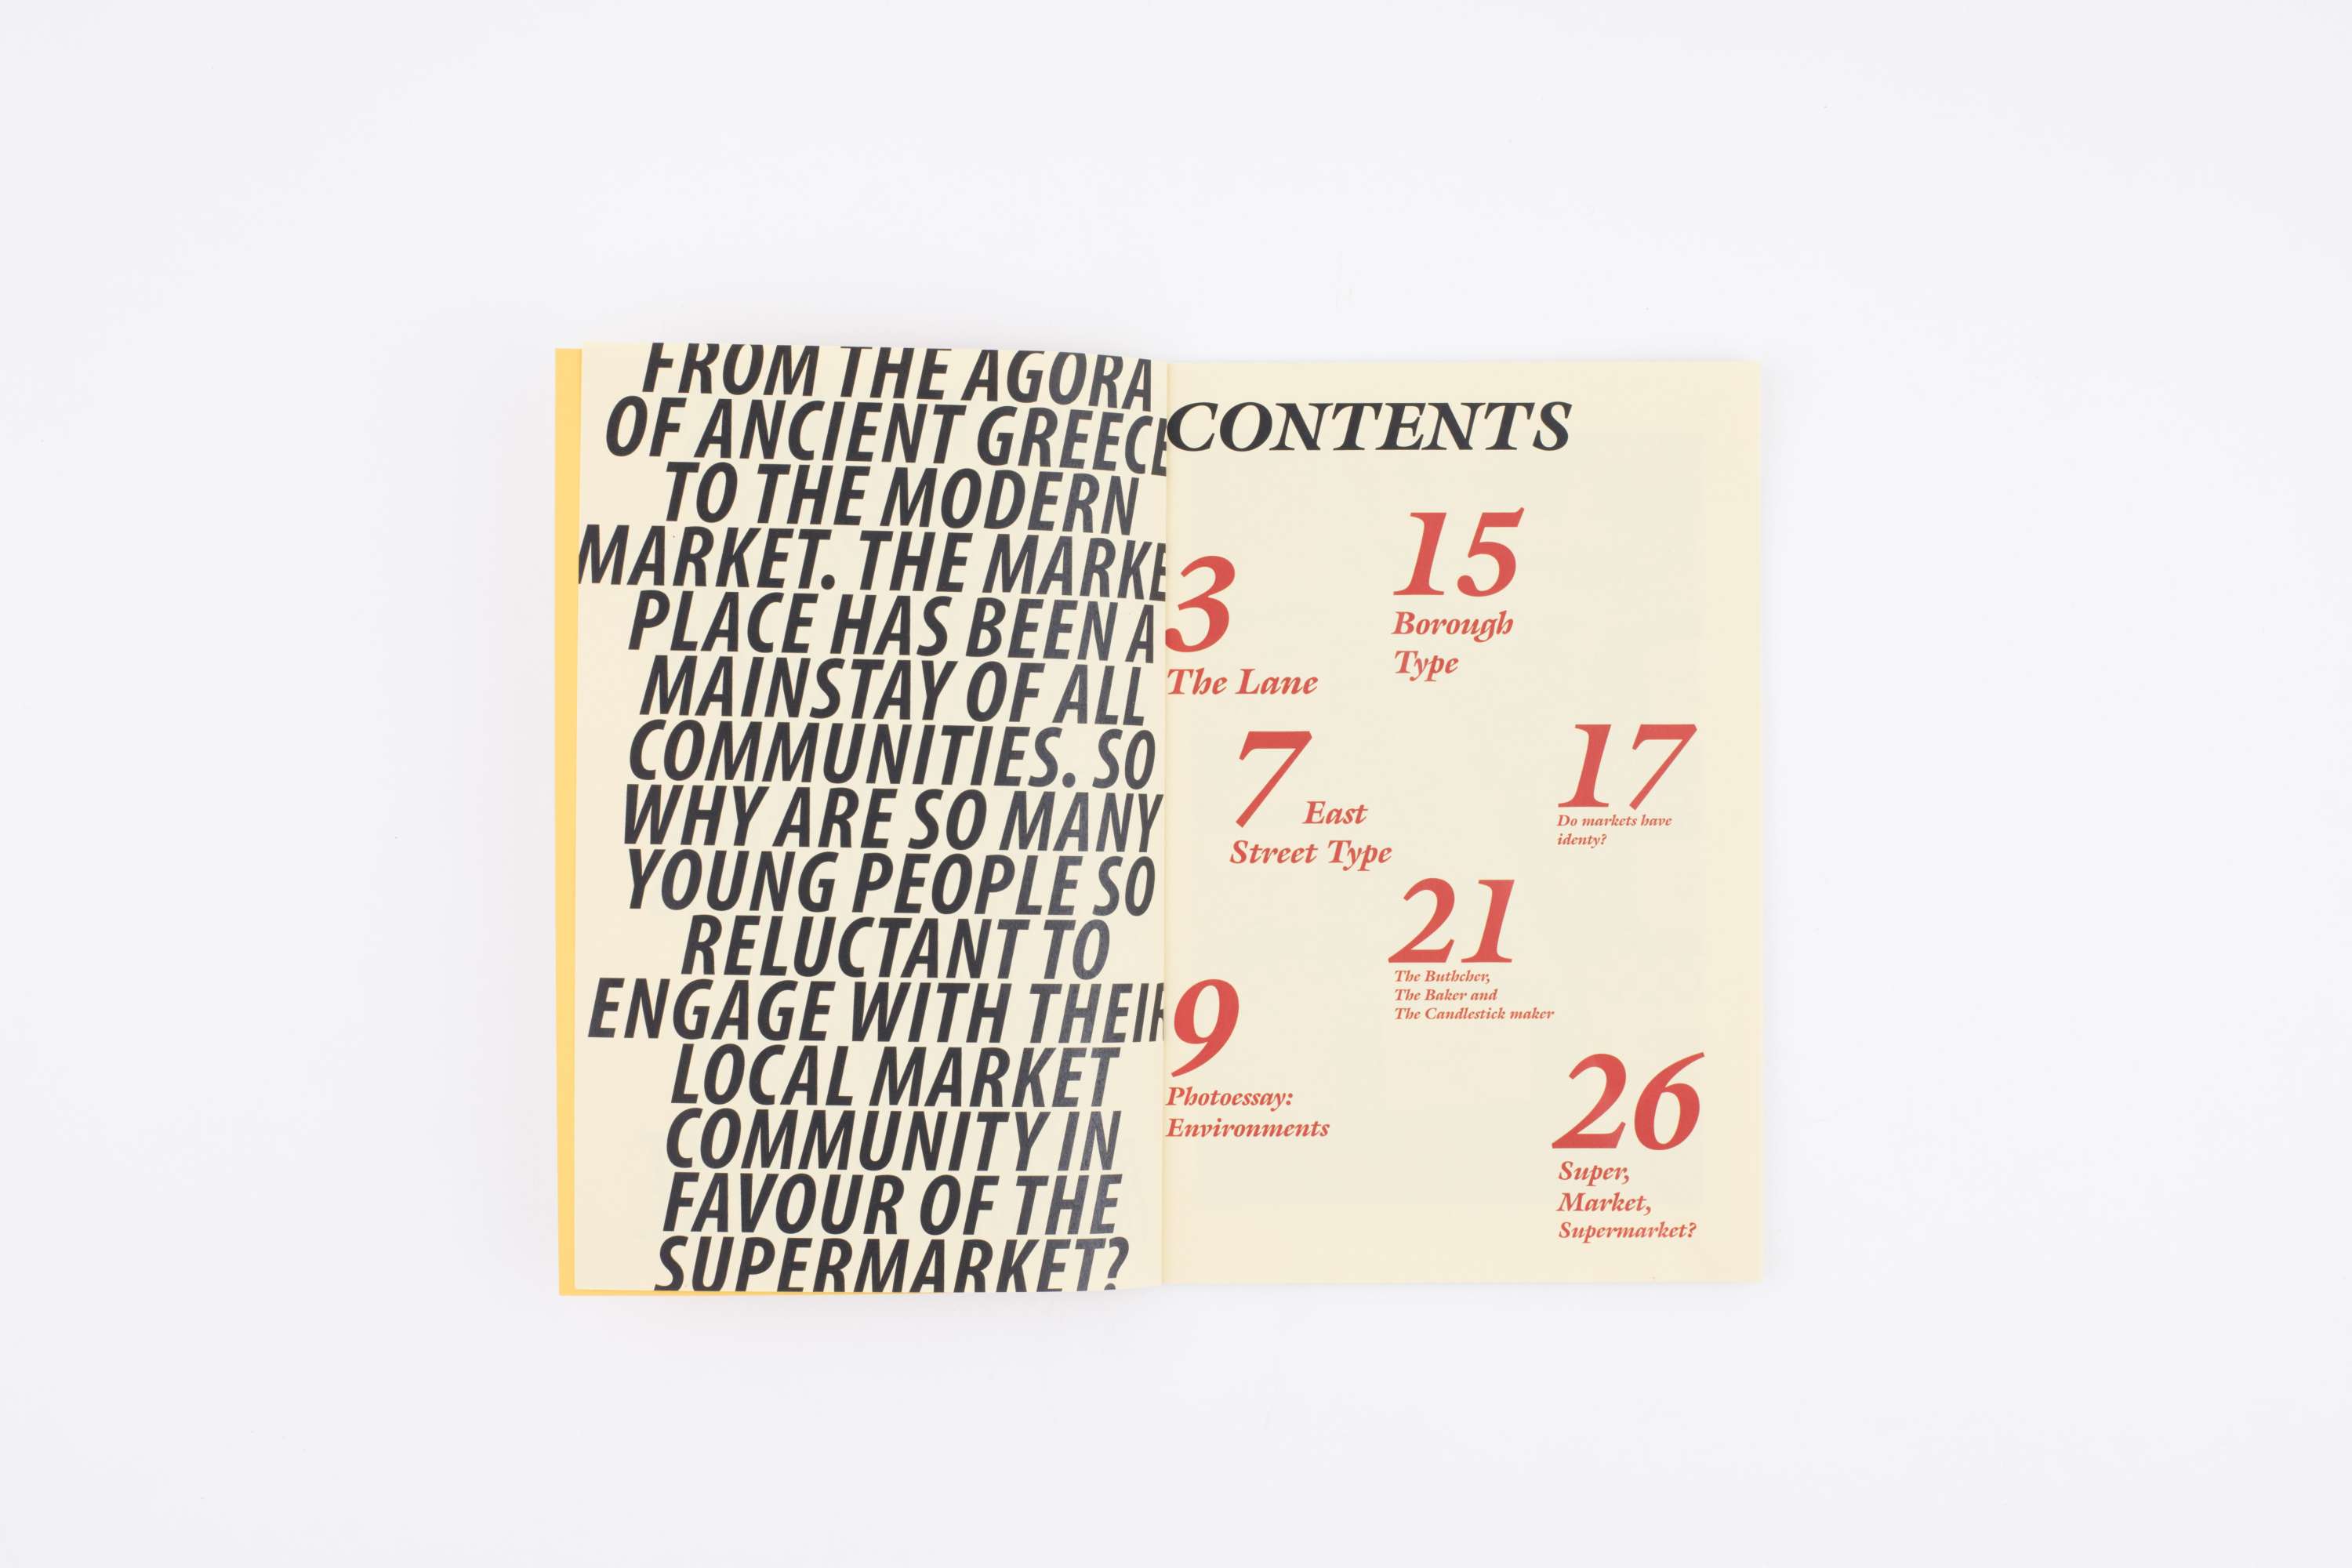 FROM THE AGORA
OF ANCIENT GREECE
TO THE MODERN
MARKET. THE MARKE
PLACE HAS BEEN A
MAINSTAY OF ALL
COMMUNITIES. SO
WHY ARE SO MANY
YOUNG PEOPLE SO
RELUCTANT TO
ENGAGE WITH THEIR
LOCAL MARKET
COMMUNITY IN
FAVOUR OF THE
SUPERMARKET?
CONTENTS
3
The Lane
7 East
Street Type
9
Photoessay:
Environments
15
Borough
Type
17
Do markets have
identy?
21
The Buthcher,
The Baker and
The Candlestick maker
26
Super,
Market,
Supermarket?